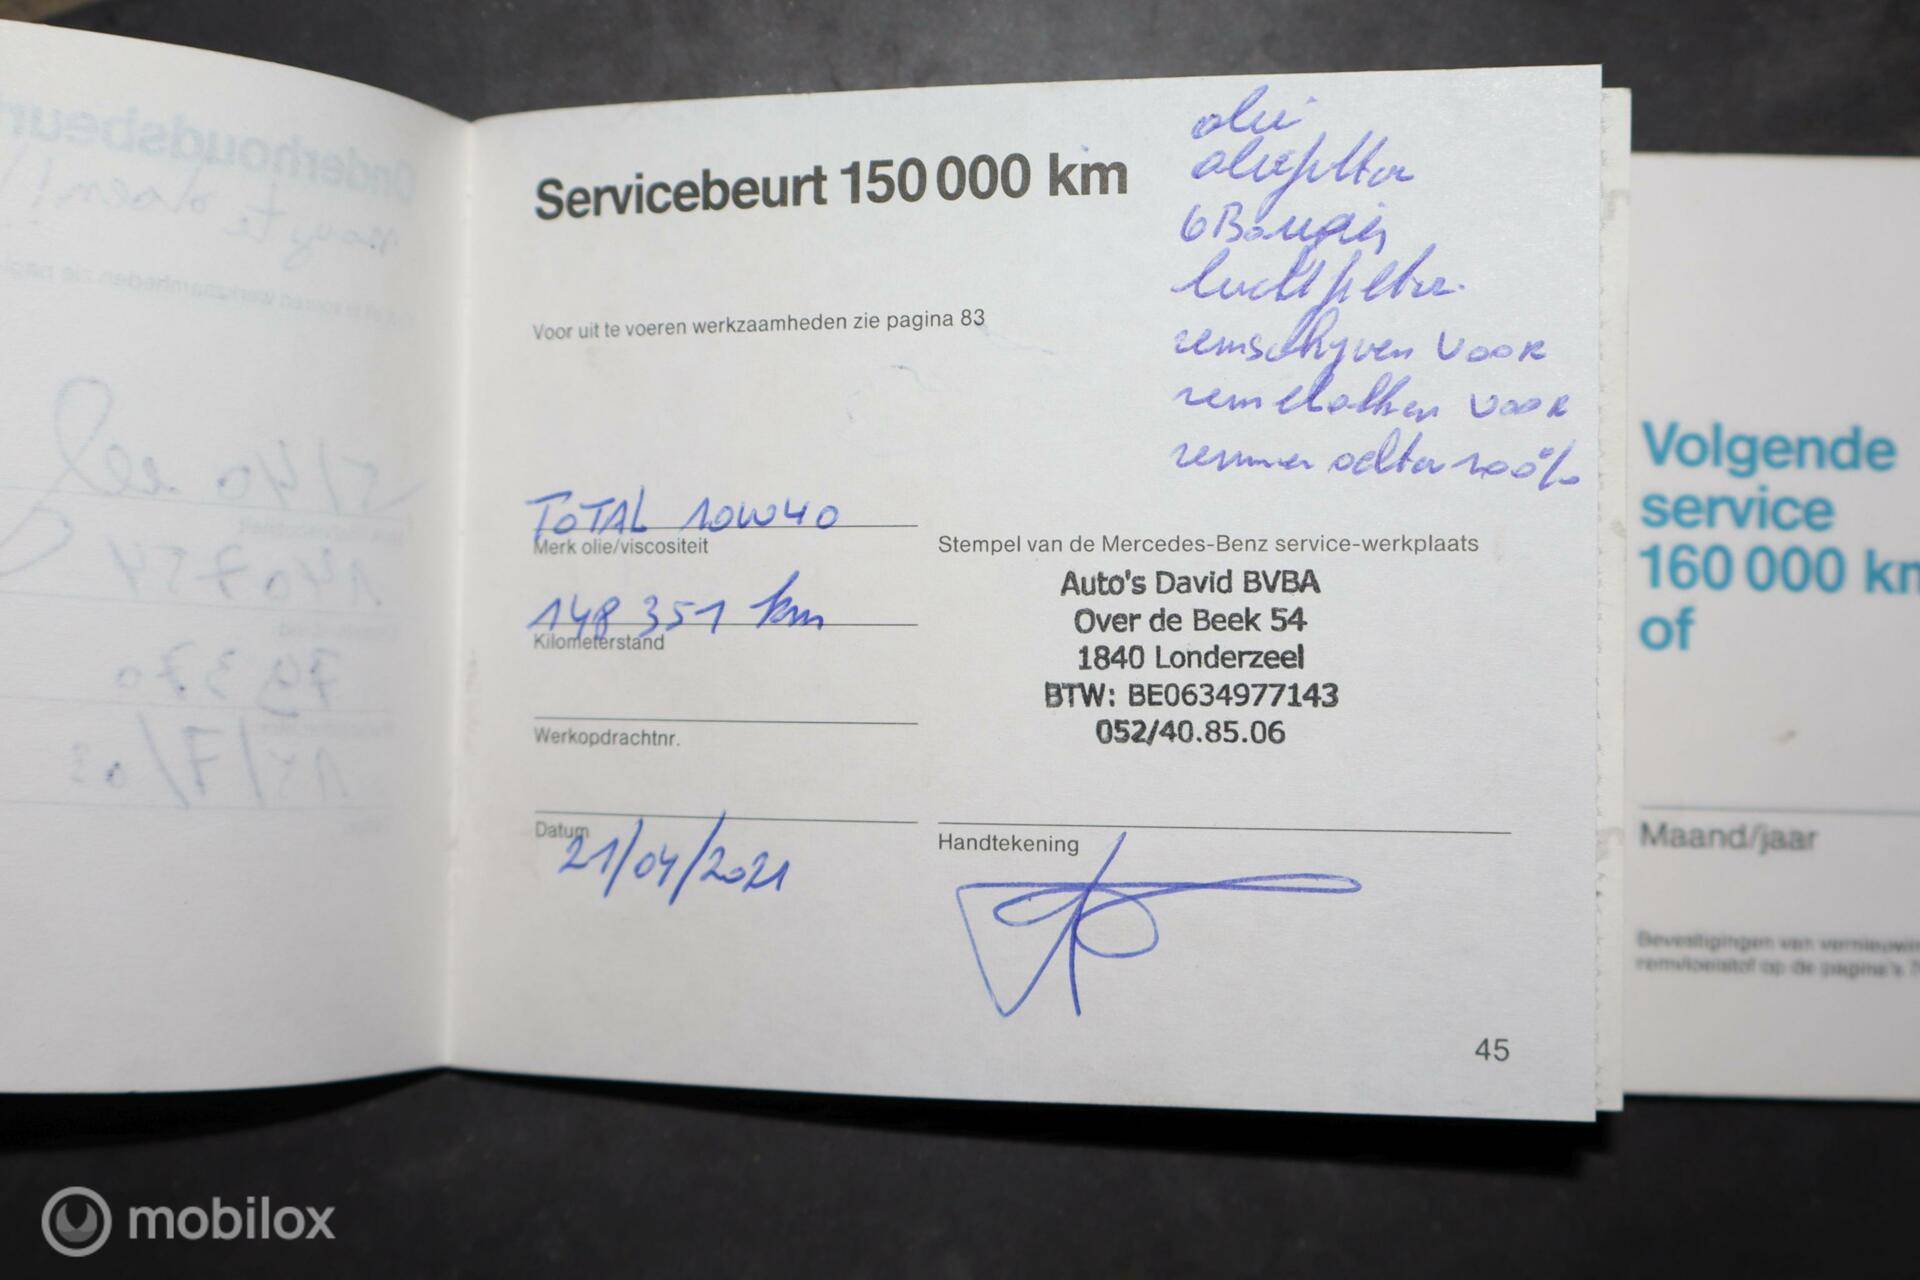 Servicebeurt 150 000 km
olie
oliefilter
6 Bougies
luchtfilter.
remschyven VOOR
remblokken VOOR
remmen achter 100%
Voor uit te voeren werkzaamheden zie pagina 83
TOTAL 10W40
Merk olie/viscositeit
148 351 km
Kilometerstand
Werkopdrachtnr.
Datum
21/04/2021
Stempel van de Mercedes-Benz service-werkplaats
Auto's David BVBA
Over de Beek 54
1840 Londerzeel
BTW: BE0634977143
052/40.85.06
Handtekening
45
Volgende
service
160 000 km
of
Maand/jaar
Bevestigingen van
remvloeistof op de pagina's 7
Onderhoudsbeurt
te doen!
5/40
140754
79370
15/7/03
mobilox